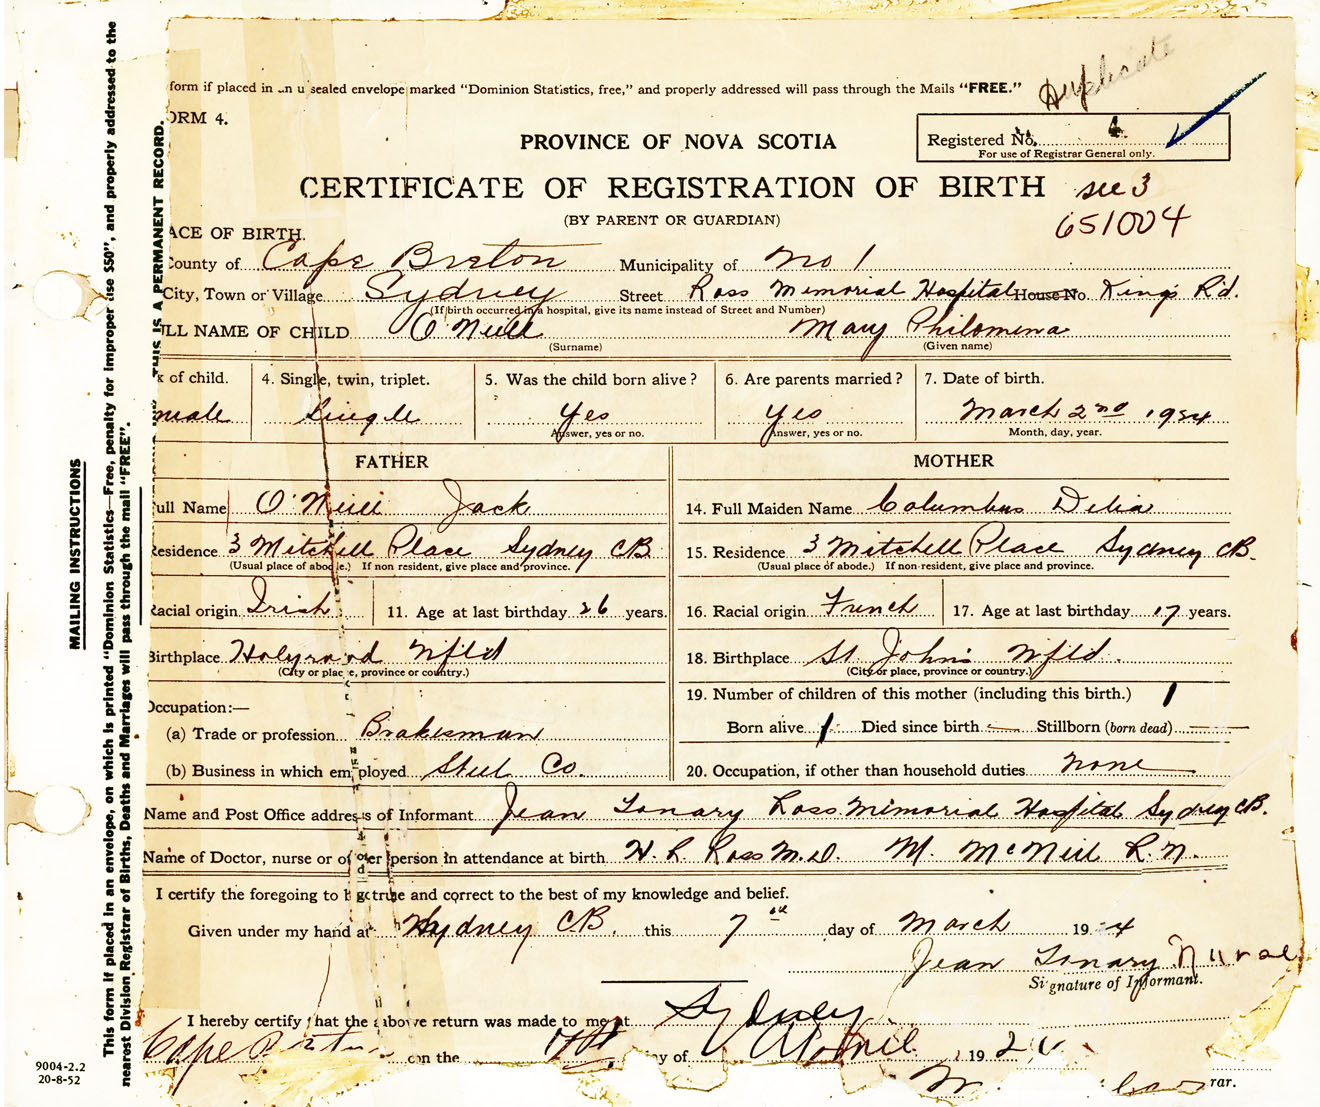 Duplicate
form if placed in an unsealed envelope marked "Dominion Statistics, free," and properly addressed will pass through the Mails "FREE."
ORM 4.
PROVINCE OF NOVA SCOTIA
Registered No. 4
For use of Registrar General only.
CERTIFICATE OF REGISTRATION OF BIRTH see 3
(BY PARENT OR GUARDIAN) 651004
ACE OF BIRTH.
County of Cape Breton Municipality of No 1
City, Town or Village Sydney Street Ross Memorial Hospital House No. Kings Rd.
(If birth occurred in a hospital, give its name instead of Street and Number)
ULL NAME OF CHILD O'Neill Mary Philomena
(Surname) (Given name)
x of child. 4. Single, twin, triplet. 5. Was the child born alive? 6. Are parents married? 7. Date of birth.
male Single Yes Yes March 2nd 1924
Answer, yes or no. Answer, yes or no. Month, day, year.
FATHER MOTHER
ull Name O'Neill Jack 14. Full Maiden Name Columbus Delia
Residence 3 Mitchell Place Sydney CB 15. Residence 3 Mitchell Place Sydney CB.
(Usual place of abode.) If non resident, give place and province. (Usual place of abode.) If non-resident, give place and province.
Racial origin Irish 11. Age at last birthday 26 years. 16. Racial origin French 17. Age at last birthday 17 years.
Birthplace Holyrood Nfld 18. Birthplace St John's Nfld.
(City or place, province or country.) (City or place, province or country.)
19. Number of children of this mother (including this birth.) 1
Occupation:—
Born alive 1 Died since birth — Stillborn (born dead) —
(a) Trade or profession Brakesman
(b) Business in which employed Steel Co. 20. Occupation, if other than household duties None
Name and Post Office address of Informant Jean Ross Memorial Hospital Sydney CB.
Name of Doctor, nurse or other person in attendance at birth H. R. Ross M.D. M. McNeil R.N.
I certify the foregoing to be true and correct to the best of my knowledge and belief.
Given under my hand at Sydney CB. this 7th day of March 19 4
Jean Nurse
Signature of Informant.
I hereby certify that the above return was made to me at Sydney
Cape Breton on the day of April 192
rar.
MAILING INSTRUCTIONS
This form if placed in an envelope, on which is printed "Dominion Statistics—Free, penalty for improper use $50", and properly addressed to the
nearest Division Registrar of Births, Deaths and Marriages will pass through the mail "FREE".
THIS IS A PERMANENT RECORD.
9004-2.2
20-8-52